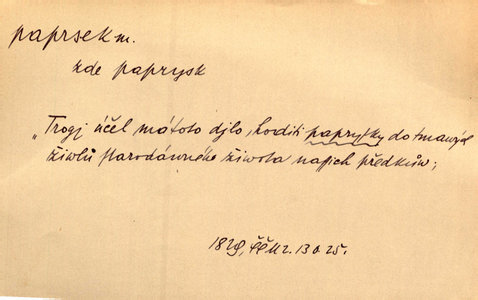 paprsek m.
zde paprysk
„Trogj účel má toto djlo, hoditi papryſky do tmawých
žiwlů starodáwného žiwota naſich předkůw;
1829, ČČM2. 13 a 25.